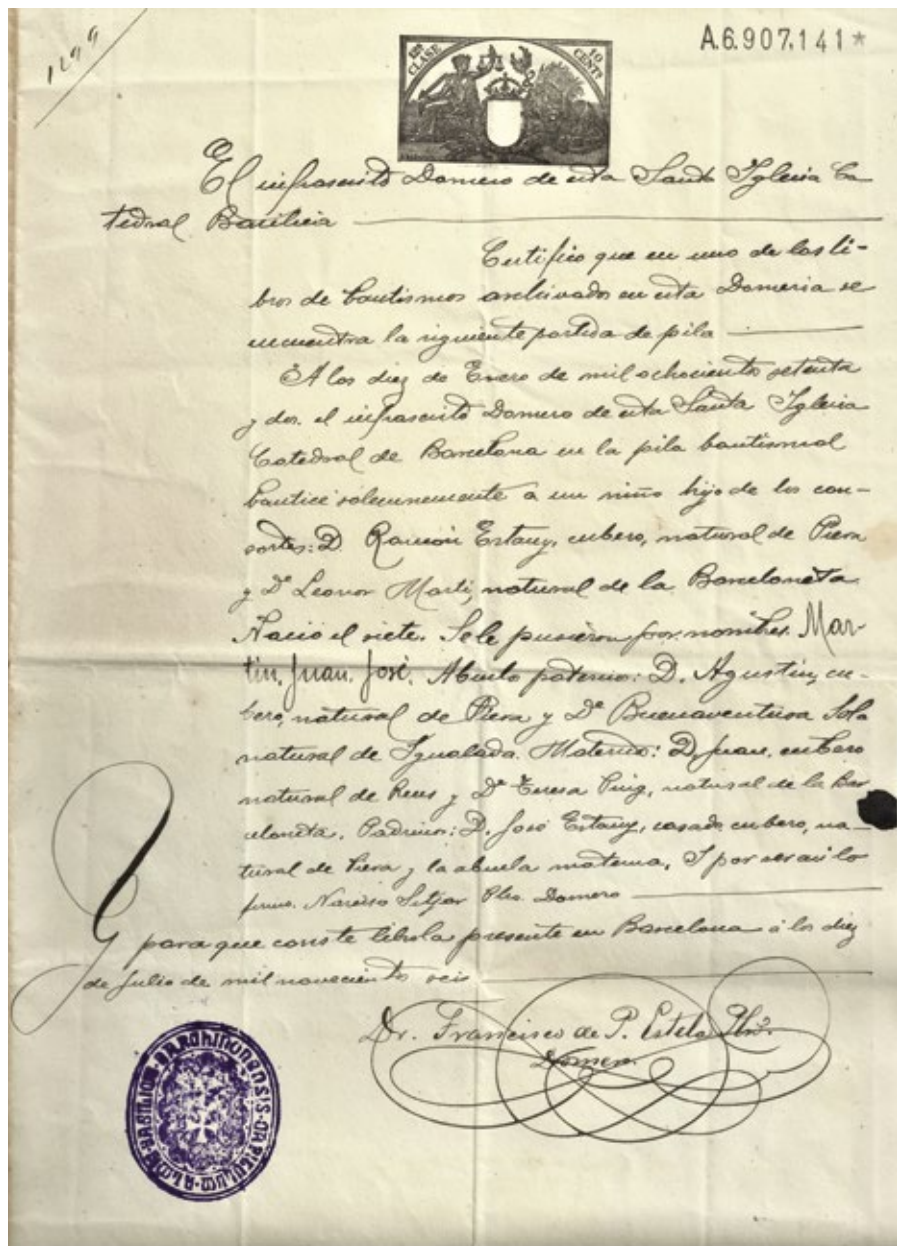 1299
A.6.907,141*
12ª CLASE
10 CENTS
El infrascrito Domero de esta Santa Iglesia Ca-
tedral Basilica
Certifico que en uno de los li-
bros de bautismos archivados en esta Domeria se
encuentra la siguiente partida de pila
A los diez de Enero de mil ochocientos setenta
y dos. el infrascrito Domero de esta Santa Iglesia
Catedral de Barcelona en la pila bautismal
bauticé solemnemente a un niño hijo de los con-
sortes: D. Ramón Estany, cubero, natural de Piera
y Dª Leonor Marti, natural de la Barceloneta
Nació el siete. Se le pusieron por nombres Mar-
tin, Juan, José. Abuelo paterno: D. Agustin, cu-
bero, natural de Piera y Dª Buenaventura Sola
natural de Igualada. Materno: D. Juan, cubero
natural de Reus y Dª Teresa Puig, natural de la Bar
celoneta. Padrinos: D. José Estany, casado, cubero, na-
tural de Piera y la abuela materna. Y por ser asi lo
firmo. Narciso Sitjar Pbro. Domero
Y para que conste libro la presente en Barcelona á los diez
de Julio de mil novecientos seis
Dr. Francisco de P. Estela Pbro.
Domero